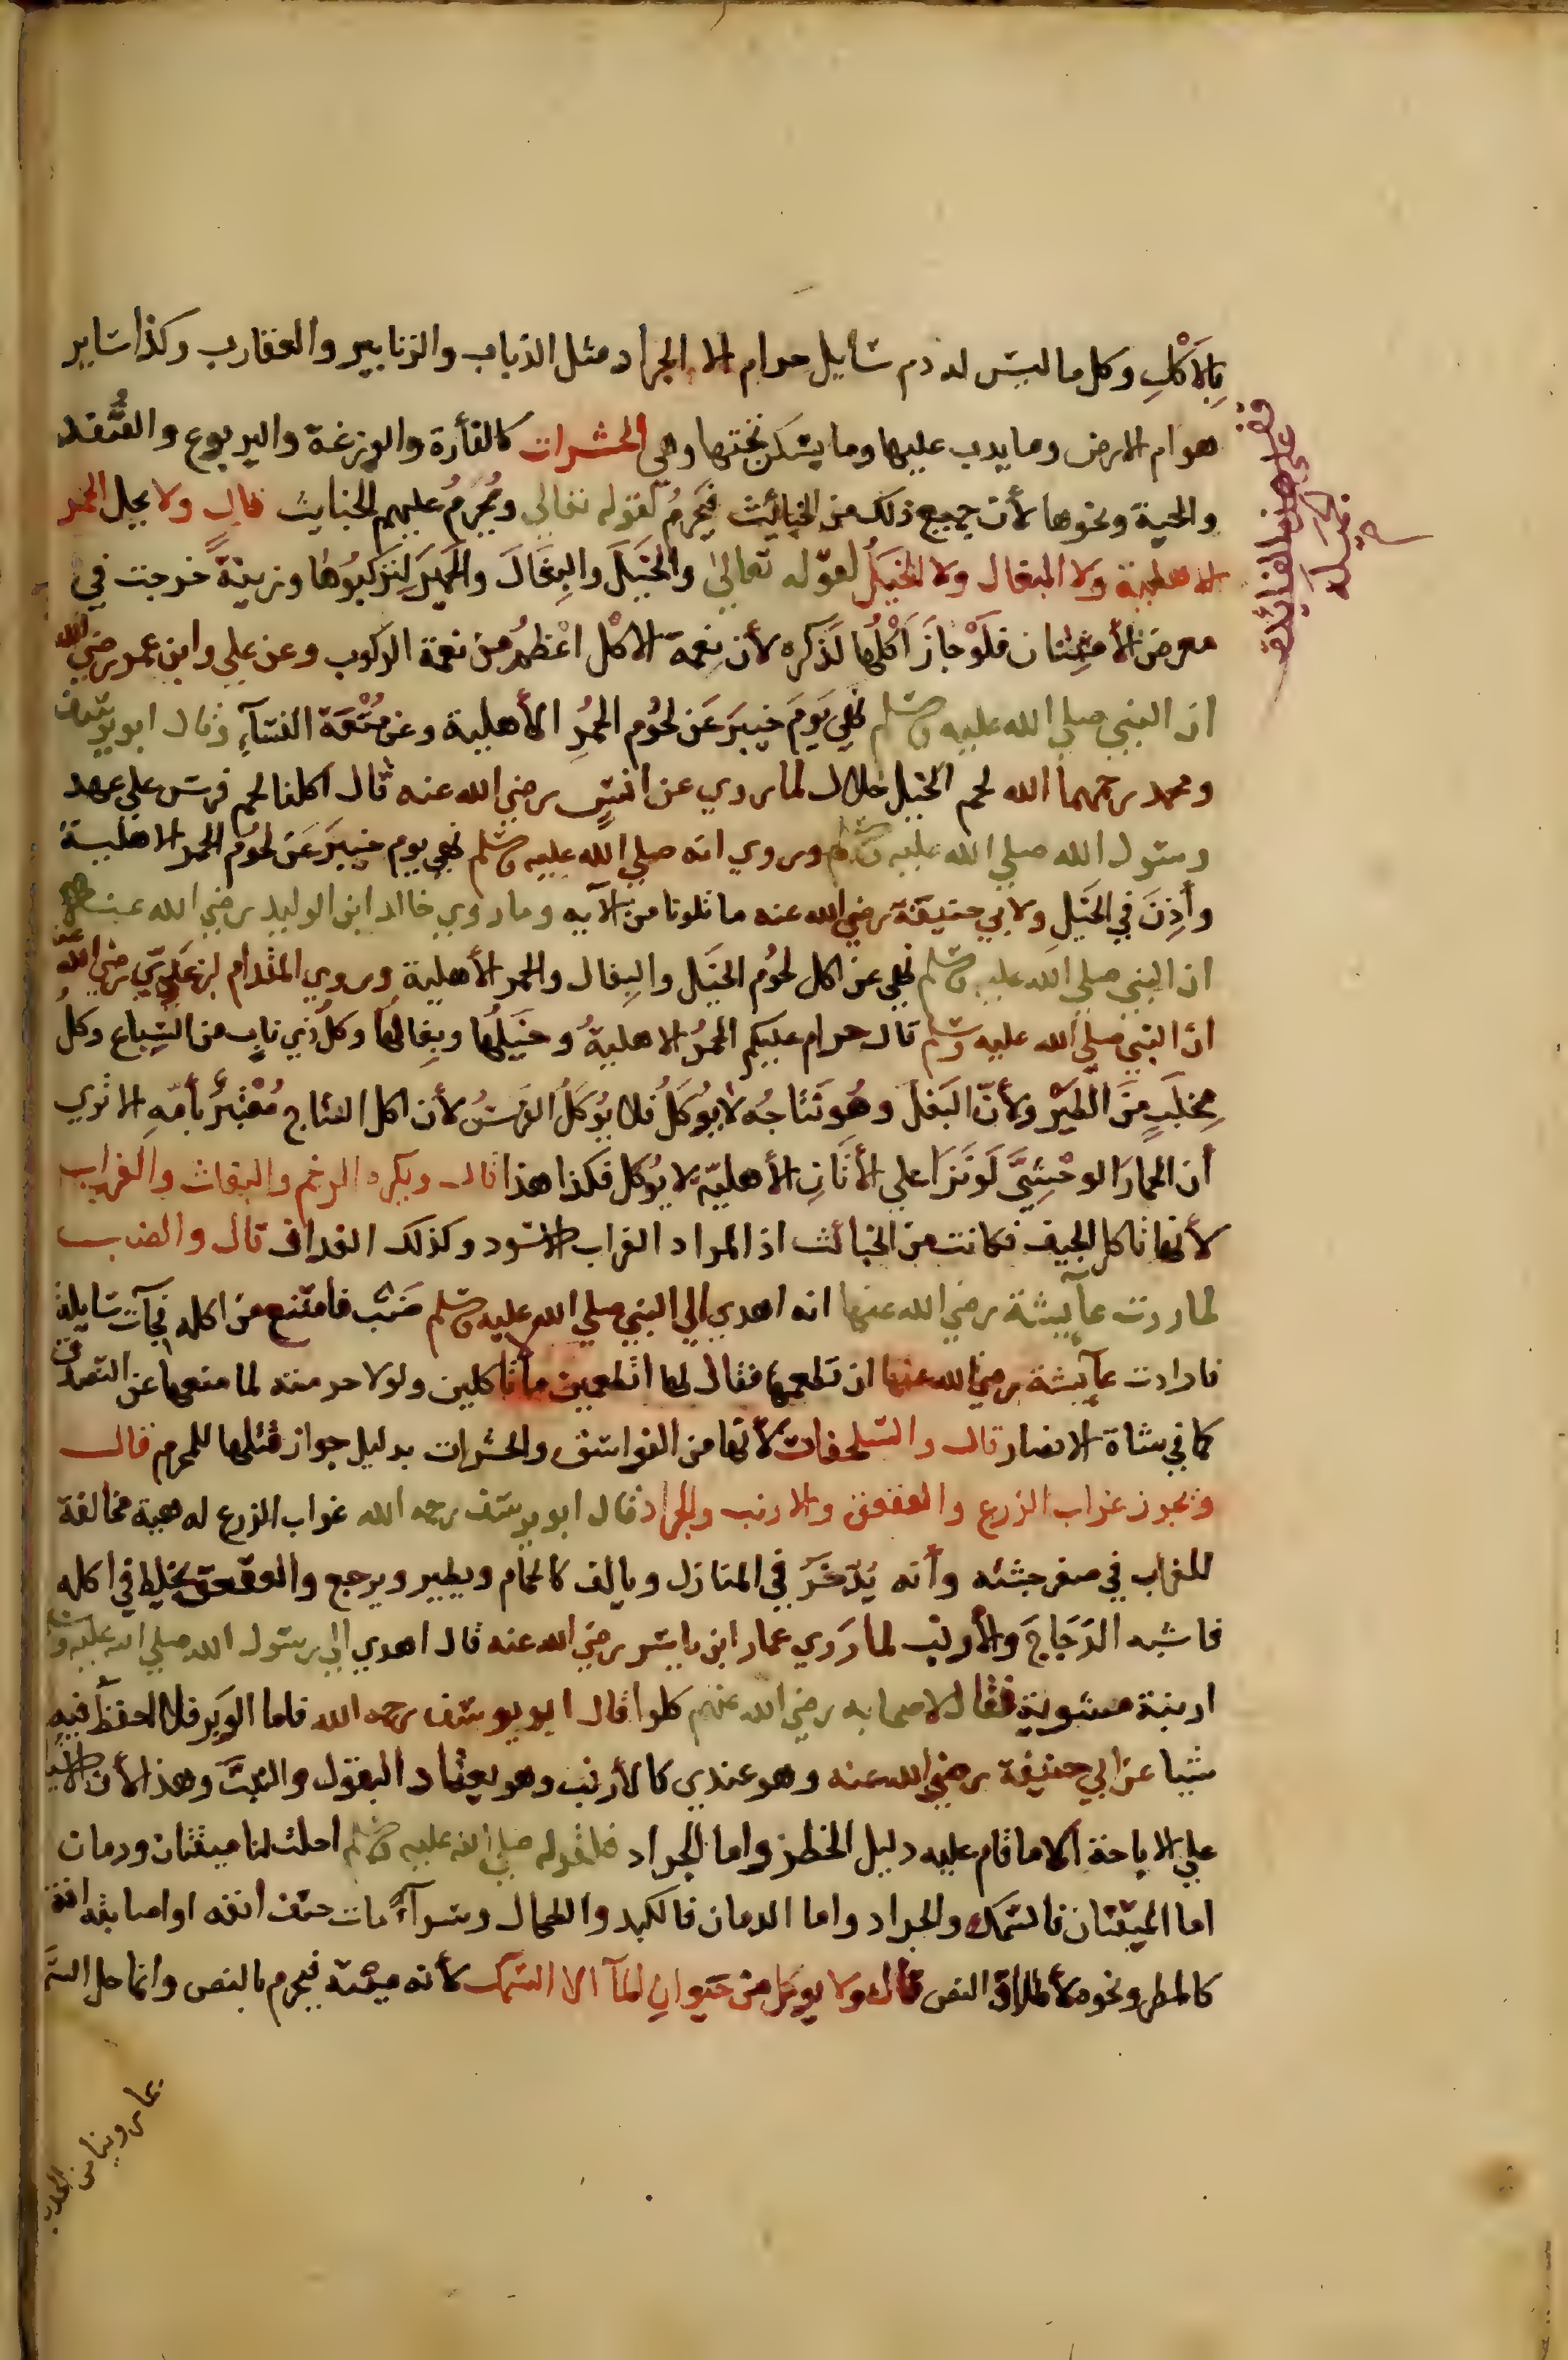 بِالأكْلِ وكل ما ليس له دم سَايل حرام الا الجراد مثل الذباب والزنابير والعقارب وكذا سَاير
هوام الارض وما يدب عليها وما يسكن تحتها وهي الحشرات كالفأرة والوزغة واليربوع والقُنفد
والحية ونحوها لأن جميع ذلك من الخبائث فيَحرُمُ لقوله تعالي ويُحَرمُ عليهم الخبايث قال ولا يحل الحمر
الاهلية ولا البغال ولا الخيلُ لقوله تعالى والخَيلَ والبِغَالَ والحَمِيَر لِتَركَبُوهَا وزينةً خرجت في
معرض الأمتنان فلَوْ جازَ اَكْلُها لَذَكره لأن نِعمة الاكل اعْظمُ من نعمة الركوب وعن علي وابن عمر رضي الله
ان النبي صلي الله عليه وسلم نهي يَومَ خيبَرَ عَن لحُوم الحمُرِ الأهلية وعن مُتْعَة النسَآءِ وقال ابو يوسف
ومحمد رحمهما الله لحم الخيل حلال لما روي عن انسٍ رضي الله عنه قال اكلنا لحم فرس علي عهد
رسول الله صلي الله عليه وسلم وروي انه صلي الله عليه وسلم نهي يوم خيبَرَ عَن لحُوم الحمر الاهلية
وأَذِنَ في الخَيلِ ولابي حنيفَة رضي الله عنه ما تلونا من الآيه وما روي خالد ابن الوليد رضي الله عنه
ان النبي صلي الله عليه وسلم نهي عن اكل لحوُم الخيَل والبِغال والحمر الأهلية وروي المقدام بن معدي رضي الله عنه
انّ النبي صلي الله عليه وسلم قال حرام عليكم الحمُرُ الاهليةُ وخَيلُها وبِغالُها وكلُ ذِي نابٍ من السِّباع وكلُ
مِخلَبٍ مِنَ الطَيرِ ولأنّ البَغلَ وهُو نَتَاجُه لا يُوكَلُ فلا يُوكَلُ الفرَسُ لأن اكل النتاج مُعْتَبرٌ بأمّهِ الا تري
أن الحمارَ الوحْشِيَّ لَو نَزَا علي الأتَانِ الأهليّه لا يُوكل فكذا هذا قال ويكره الرخم والبغاث والغراب
لأنها تاكل الجيف فكانت من الخبائث اذ المراد الغراب الاسود وكذلك الغداف قال والضب
لما روت عآيشة رضي الله عنها انه اهدي الي النبي صلي الله عليه وسلم ضَبٌ فامتنع من اكله فجآت سَايلة
فارادت عآيشة رضي الله عنها ان تطعمها فقال لها اتطعمين مالا تاكلين ولولا حرمته لما منعها عن التصدق
كما في شاة الانصار قال والسلحفات لأنها من الفواسق والحشرات بدليل جواز قتلها للمحرم قال
ويجوز غراب الزرع والعقعق والارنب والجراد قال ابو يوسف رحمه الله غراب الزرع له هيبة مخالفة
للغراب في صغر جثته وأنه يُدّخَرُ في المنازل ويالف كالحمام ويطير ويرجع والعقعق يخلط في اكله
فاشبه الدَجَاجَ والأرنب لما رَوي عمار ابن ياسر رضي الله عنه قال اهدي الي رسول الله صلي الله عليه وسلم
ارنبة مشوية فقال لاصحابه رضي الله عنهم كلوا قال ابو يوسف رحمه الله فاما الوَبَر فلا احفظُ فيه
شيا عن ابي حنيفة رضي الله عنه وهو عندي كالأرنب وهو يعتاد البقول والنبت وهذا لأن الاشيا
علي الاباحة الا ما قام عليه دليل الحظر واما الجراد فلقوله صلي الله عليه وسلم احلت لنا ميتتان ودمان
اما الميتتان فالسَمك والجراد واما الدمان فالكبد والطحال وسوآءً مات حتف انفه او اصابته افة
كالمطر ونحوه لأطلاق النص قال ولا يوكل من حَيوانِ المآ الا السَمك لأنه ميتة فيحرم بالنص وانما حل السَّ
وقف
علي طلبة
بما روينا من الحديث